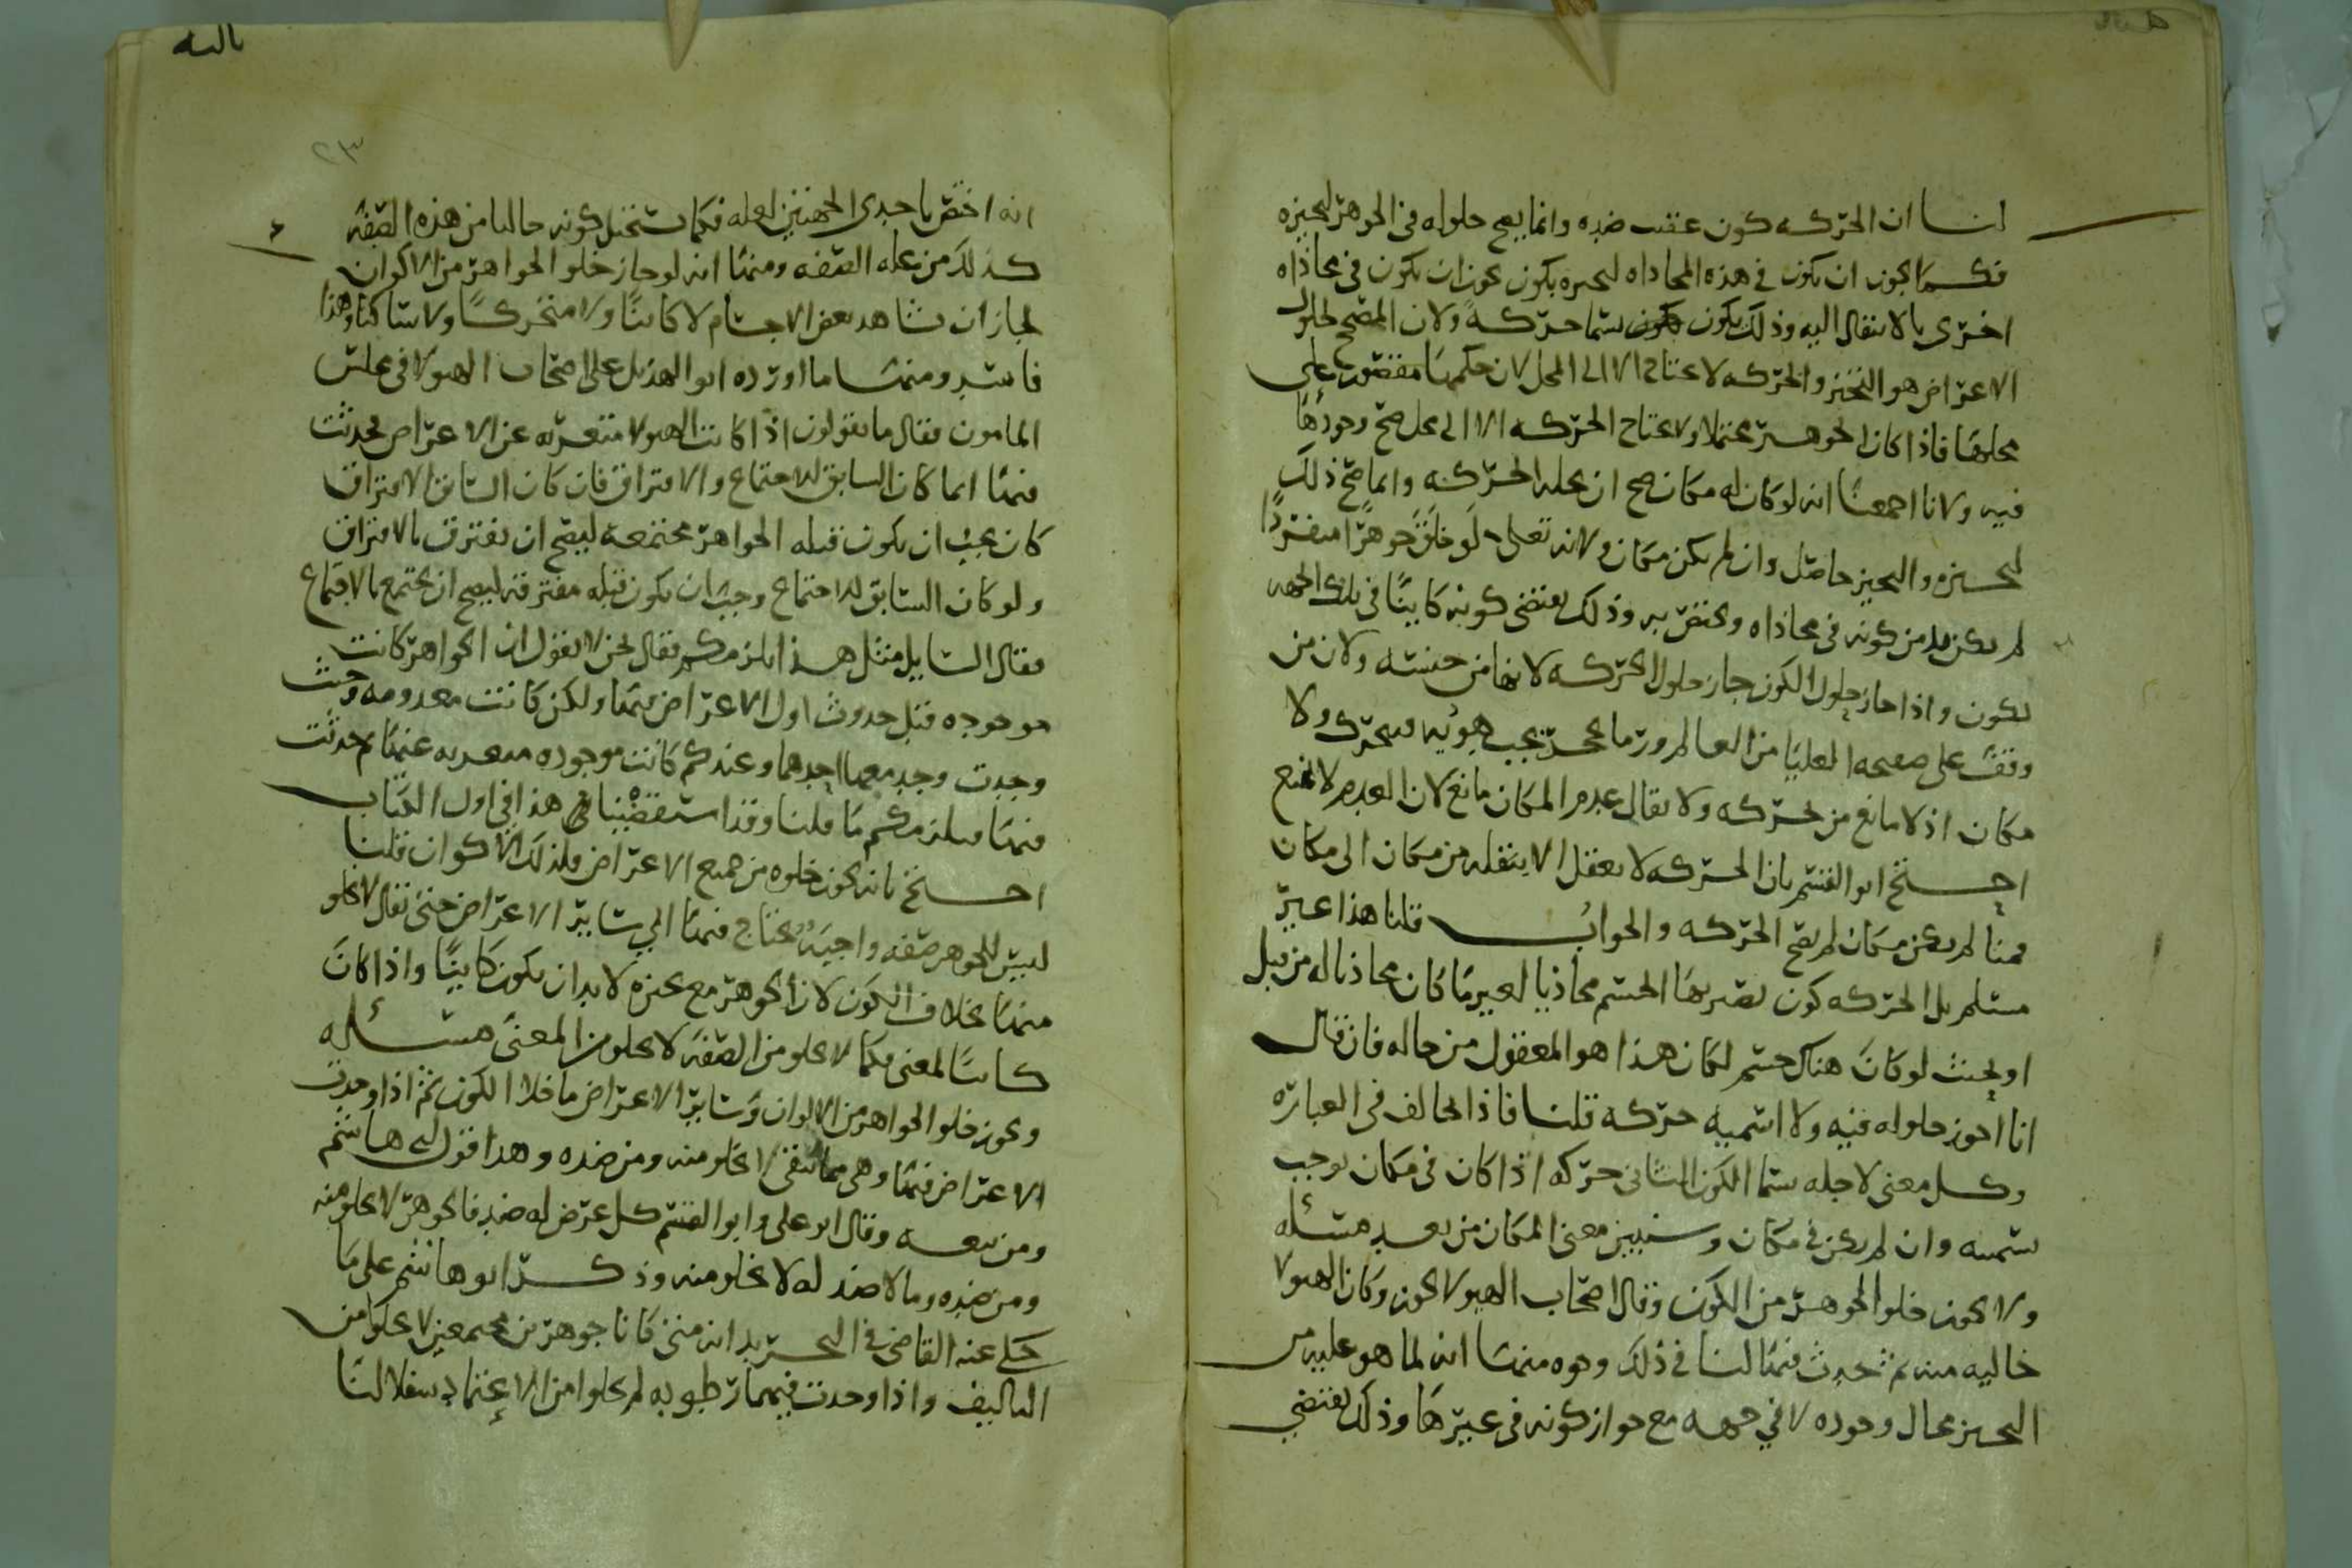 لنا ان الحركه كون عقيب ضده وانما يصح حلوله في الجوهر لتحيزه
فكما يجوز ان يكون في هذه المحاذاه لتحيزه بكون يجوز ان يكون في محاذاه
اخرى بالانتقال اليه وذلك بكون يسما حركه ولان المصحح لحلول
الاعراض هو التحيز والحركه لا تحتاج الا الى المحل لان حكمها مقصور على
محلها فاذا كان الجوهر محتملا ولا تحتاج الحركه الا الى محل صح وجودها
فيه ولانا اجمعنا انه لو كان له مكان صح ان يحله الحركه وانما صح ذلك
لتحيزه والتحيز حاصل وان لم يكن مكان ولانه تعلى لو خلق جوهرا منفردا
لم يكن بد من كونه في محاذاه ويختص به وذلك يقتضي كونه كاينا في تلك الجهه
بكون واذا جاز حلول الكون جاز حلول الحركه لانها من جنسه ولان من
وقف على صفيحه العليا من العالم ورما بحجر يجب هويه فيتحرك ولا
مكان اذ لا مانع من تحركه ولا يقال عدم المكان مانع لان العدم لا يمنع
احتج ابو القسم بان الحركه لا يعقل الا بنقله من مكان الى مكان
فمتا لم يكن مكان لم يصح الحركه والجواب قلنا هذا غير
مسلم بل الحركه كون يصير بها الجسم محاذيا لغير ما كان محاذيا له من قبل
او بحيث لو كان هناك جسم لكان هذا هو المعقول من حاله فان قال
انا اجوز حلوله فيه ولا اسميه حركه قلنا فاذا تخالف في العباره
وكل معنى لاجله يسما الكون الثاني حركه اذا كان في مكان يوجب
تسميته وان لم يكن في مكان وسنبين معنى المكان من بعد مسئله
ولا يجوز خلو الجوهر من الكون وقال اصحاب الهيولا يجوز وكان الهيولا
خاليه منه ثم تحدث فيها لنا في ذلك وجوه منها انه لما هو عليه من
التحيز محال وجوده لا في جهه مع جواز كونه في غيرها وذلك يقتضي
بالله
٢٣
انه اختص باحدى الجهتين لعله فكما يستحيل كونه خاليا من هذه الصفه
كذلك من عله الصفه ومنها انه لو جاز خلو الجواهر من الاكوان
لجاز ان نشاهد بعض الاجسام لا كاينا ولا متحركا ولا ساكنا وهذا
فاسد ومنها ما اورده ابو الهذيل على اصحاب الهيولا في مجلس
المامون فقال ما تقولون اذا كانت الهيولا متعريه عن الاعراض فحدثت
فيها ايما كان السابق الاجتماع والافتراق فان كان السابق الافتراق
كان يجب ان يكون قبله الجواهر مجتمعه ليصح ان تفترق بالافتراق
ولو كان السابق الاجتماع وجب ان يكون قبله مفترقه ليصح ان يجتمع بالاجتماع
فقال السايل مثل هذا يلزمكم فقال نحن لا نقول ان الجواهر كانت
موجوده قبل حدوث اول الاعراض فيها ولكن كانت معدومه وحيث
وجدت وجد معها احدهما وعندكم كانت موجوده متعريه عنها ثم حدثت
فيها فيلزمكم ما قلنا وقد استقصينا في هذا في اول الكتاب
احتج بانه يجوز خلوه من جميع الاعراض فلذلك الاكوان قلنا
ليس للجوهر صفه واجبه يحتاج فيها الى ساير الاعراض حتى يقال لا يخلو
منها بخلاف الكون لان الجوهر مع تحيزه لا بد ان يكون كاينا واذا كان
كاينا لمعنى فكما لا يخلو من الصفه لا يخلو من المعنى مسئله
ويجوز خلو الجواهر من الالوان وساير الاعراض ما خلا الكون ثم اذا وجدت
الاعراض فيها وهي مما تبقى لا يخلو منه ومن ضده وهذا قول ابي هاشم
ومن تبعه وقال ابو علي وابو القسم كل عرض له ضد فالجوهر لا يخلو منه
ومن ضده وما لا ضد له لا يخلو منه وذكر ابو هاشم على ما
حكى عنه القاضي في التحريد انه متى كانا جوهرين مجتمعين لا يخلوا من
التاليف واذا وجدت فيهما رطوبه لم يخلوا من الاعتماد سفلا لنا